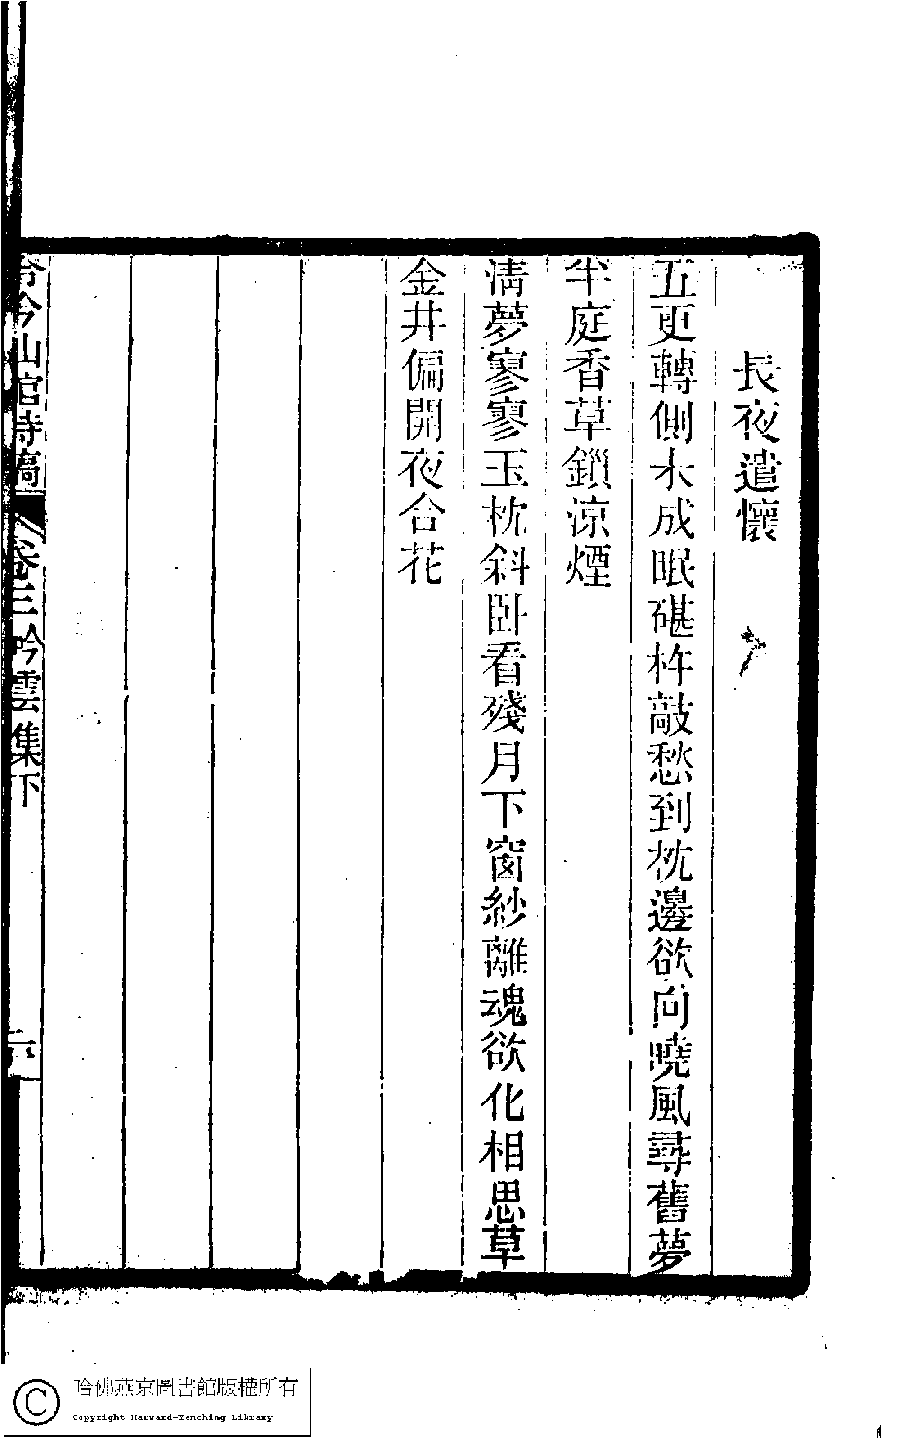 長夜遣懷
五更轉側未成眠碪杵敲愁到枕邊欲向曉風尋舊夢
半庭香草鎖涼煙
淸夢寥寥玉枕斜臥看殘月下窗紗離魂欲化相思草
金井偏開夜合花
今山館詩稿 卷三吟雲集下 六
哈佛燕京圖書館版權所有
Copyright Harvard-Yenching Library